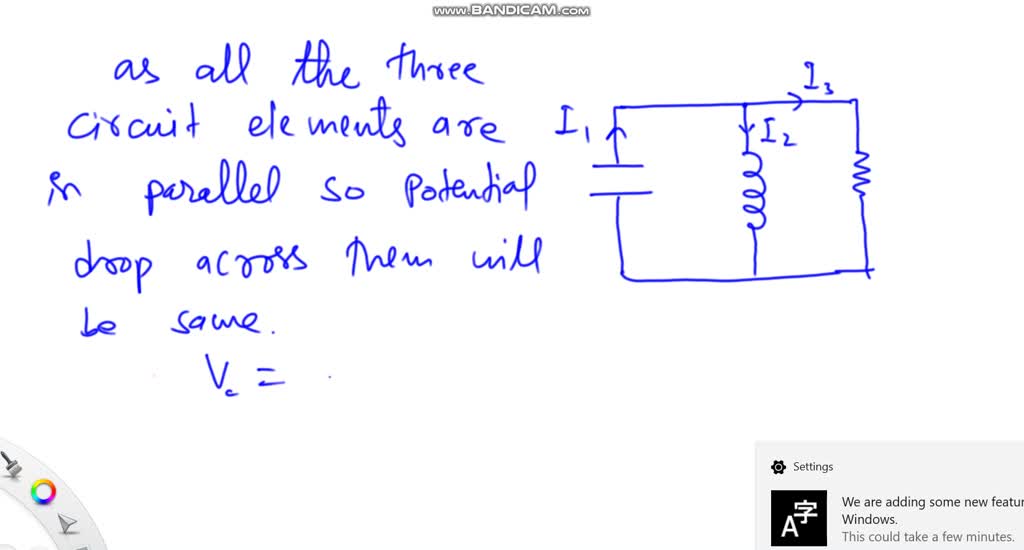 www.BANDICAM.com
as all the three
circuit elements are
in parallel so potential
drop across them will
be same.
V_c =
I_1
I_2
I_3
Settings
We are adding some new featur
Windows.
This could take a few minutes.
A字